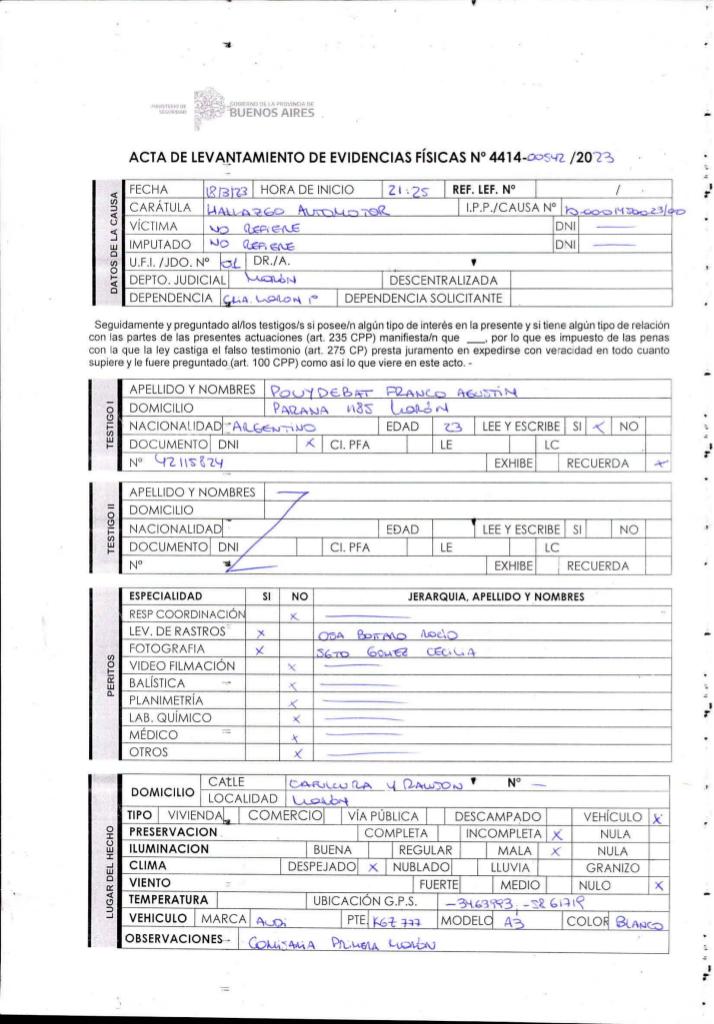 MINISTERIO DE SEGURIDAD
GOBIERNO DE LA PROVINCIA DE
BUENOS AIRES
ACTA DE LEVANTAMIENTO DE EVIDENCIAS FÍSICAS Nº 4414-00542 /2023
DATOS DE LA CAUSA
FECHA 18/3/23 HORA DE INICIO 21:25 REF. LEF. Nº /
CARÁTULA HALLAZGO AUTOMOTOR I.P.P./CAUSA Nº
VÍCTIMA NO REFIERE DNI
IMPUTADO NO REFIERE DNI
U.F.I. /JDO. Nº 01 DR./A.
DEPTO. JUDICIAL MORÓN DESCENTRALIZADA
DEPENDENCIA CRIA. MORON 1º DEPENDENCIA SOLICITANTE
Seguidamente y preguntado al/los testigos/s si posee/n algún tipo de interés en la presente y si tiene algún tipo de relación
con las partes de las presentes actuaciones (art. 235 CPP) manifiesta/n que ___, por lo que es impuesto de las penas
con la que la ley castiga el falso testimonio (art. 275 CP) presta juramento en expedirse con veracidad en todo cuanto
supiere y le fuere preguntado (art. 100 CPP) como así lo que viere en este acto. -
TESTIGO I
APELLIDO Y NOMBRES POUYDEBAT FRANCO AGUSTÍN
DOMICILIO PARANA 1185 MORÓN
NACIONALIDAD ARGENTINO EDAD 23 LEE Y ESCRIBE SI X NO
DOCUMENTO DNI X CI. PFA LE LC
Nº 42115824 EXHIBE RECUERDA X
TESTIGO II
APELLIDO Y NOMBRES
DOMICILIO
NACIONALIDAD EDAD LEE Y ESCRIBE SI NO
DOCUMENTO DNI CI. PFA LE LC
Nº EXHIBE RECUERDA
PERITOS
ESPECIALIDAD SI NO JERARQUIA, APELLIDO Y NOMBRES
RESP COORDINACIÓN X
LEV. DE RASTROS X ROCÍO
FOTOGRAFIA X SGTO GOMEZ CECILIA
VIDEO FILMACIÓN X
BALÍSTICA X
PLANIMETRÍA X
LAB. QUÍMICO X
MÉDICO X
OTROS X
LUGAR DEL HECHO
DOMICILIO CALLE Y RAWSON Nº -
LOCALIDAD MORÓN
TIPO VIVIENDA COMERCIO VÍA PÚBLICA DESCAMPADO VEHÍCULO X
PRESERVACION COMPLETA INCOMPLETA X NULA
ILUMINACION BUENA REGULAR MALA X NULA
CLIMA DESPEJADO X NUBLADO LLUVIA GRANIZO
VIENTO FUERTE MEDIO NULO X
TEMPERATURA UBICACIÓN G.P.S. -3463993 -5861719
VEHICULO MARCA AUDI PTE. KGZ 777 MODELO A3 COLOR BLANCO
OBSERVACIONES COMISARIA PRIMERA MORÓN